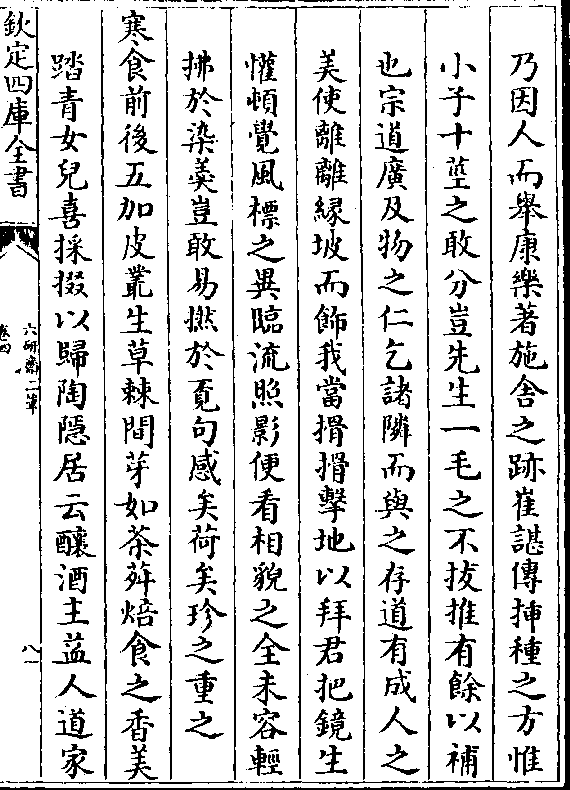 乃因人而舉康樂著施舍之跡崔諶傳揷種之方惟
小子十莖之敢分豈先生一毛之不拔推有餘以補
也宗道廣及物之仁乞諸隣而與之存道有成人之
美使離離緣坡而飾我當搰搰擊地以拜君把鏡生
懽頓覺風標之異臨流照影便看相貌之全未容輕
拂於染羮豈敢易撚於覔句感矣荷矣珍之重之
寒食前後五加皮叢生草棘間芽如茶茻焙食之香美
踏青女兒喜採掇以歸陶隱居云釀酒主益人道家
欽定四庫全書
六研齋二筆
卷四
八